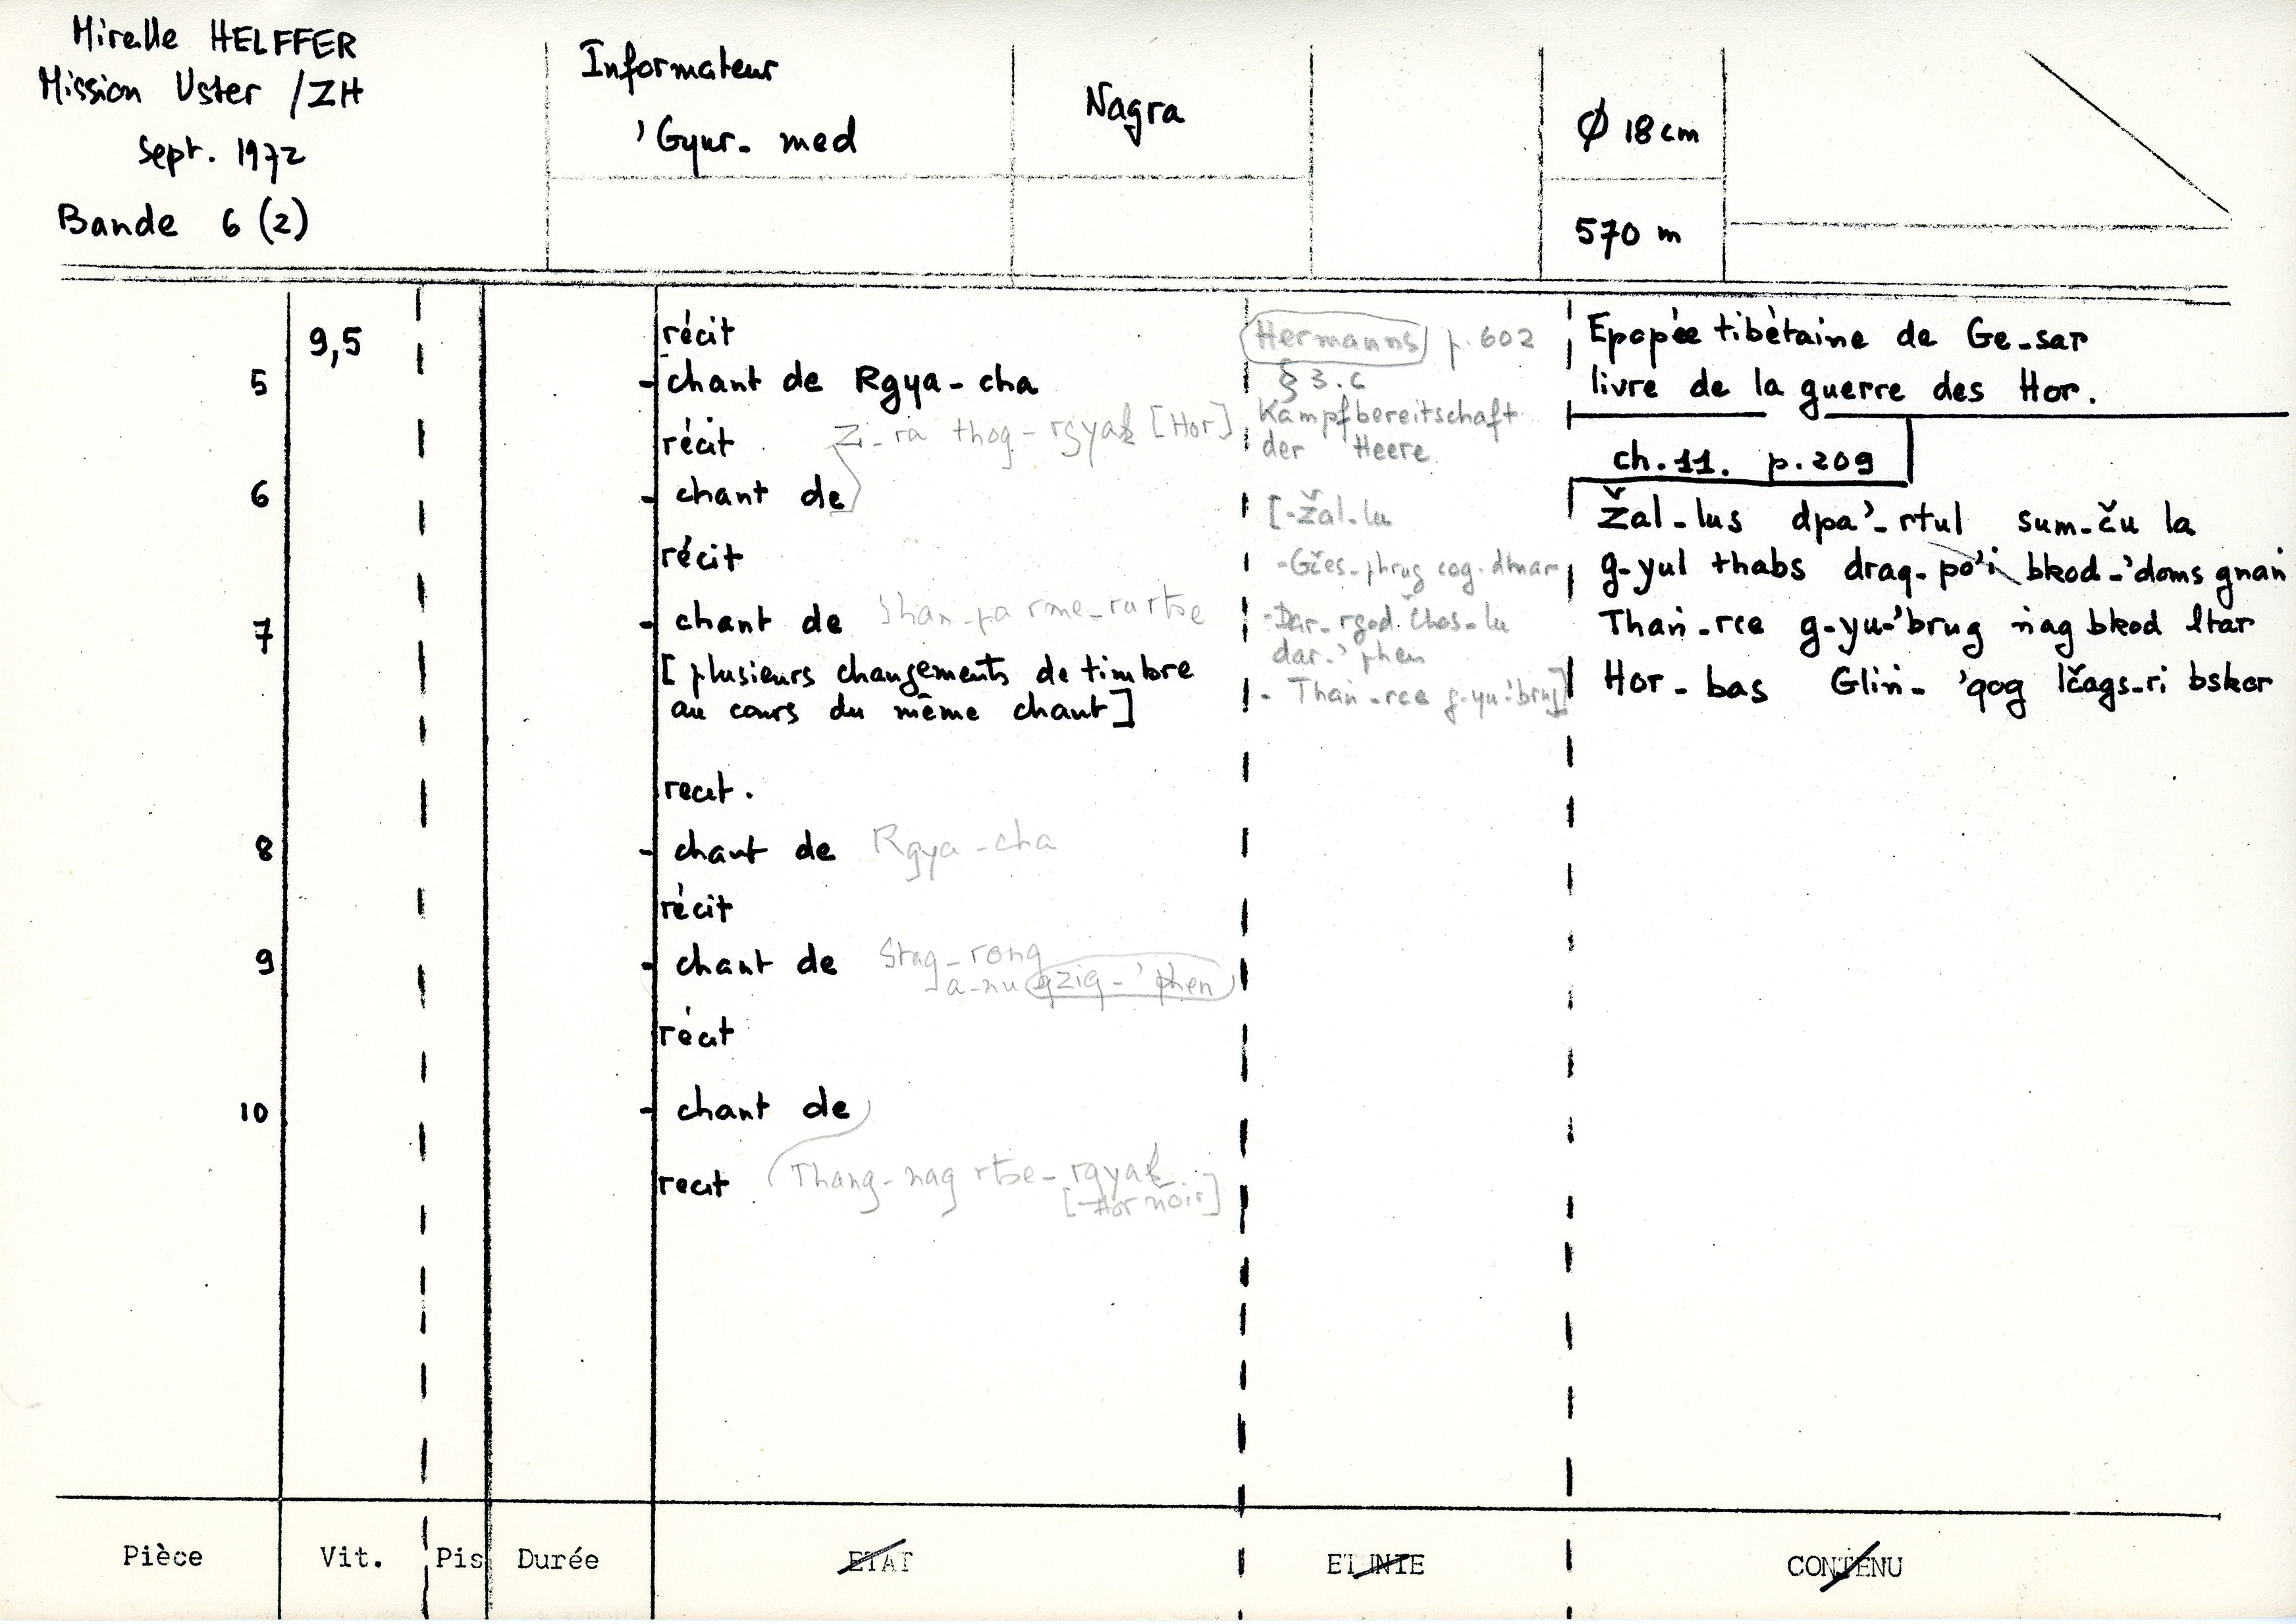 Mireille HELFFER
Mission Uster /ZH
Sept. 1972
Bande 6 (2)
Informateur
'Gyur-med
Nagra
Ø 18 cm
570 m
9,5
récit
5 - chant de Rgya-cha
récit
Zi-ra thog-rgyal [Hor]
6 - chant de
récit
7 - chant de Shan-pa rme-ru rtse
[plusieurs changements de timbre
au cours du même chant]
recit.
8 - chant de Rgya-cha
récit
9 - chant de Stag-rong
a-nu gzig-'phen
récit
10 - chant de
recit Thang-nag rtse-rgyal
[Hor noir]
Hermanns p.602
§ 3.6
Kampfbereitschaft
der Heere
[-Žal-lu
-Gčes-phrug cog-dmar
-Dar-rgod Čhos-lu
dar-'phen
- Thaṅ-rce g-yu-'brug]
Epopée tibétaine de Ge-sar
livre de la guerre des Hor.
ch.11. p.209
Žal-lus dpa'-rtul sum-ču la
g-yul thabs drag-po'i bkod-'doms gnaṅ
Thaṅ-rce g-yu-'brug ṅag bkod ltar
Hor-bas Gliṅ-'gog lčags-ri bskor
Pièce
Vit.
Pis
Durée
ETAT
ETHNIE
CONTENU